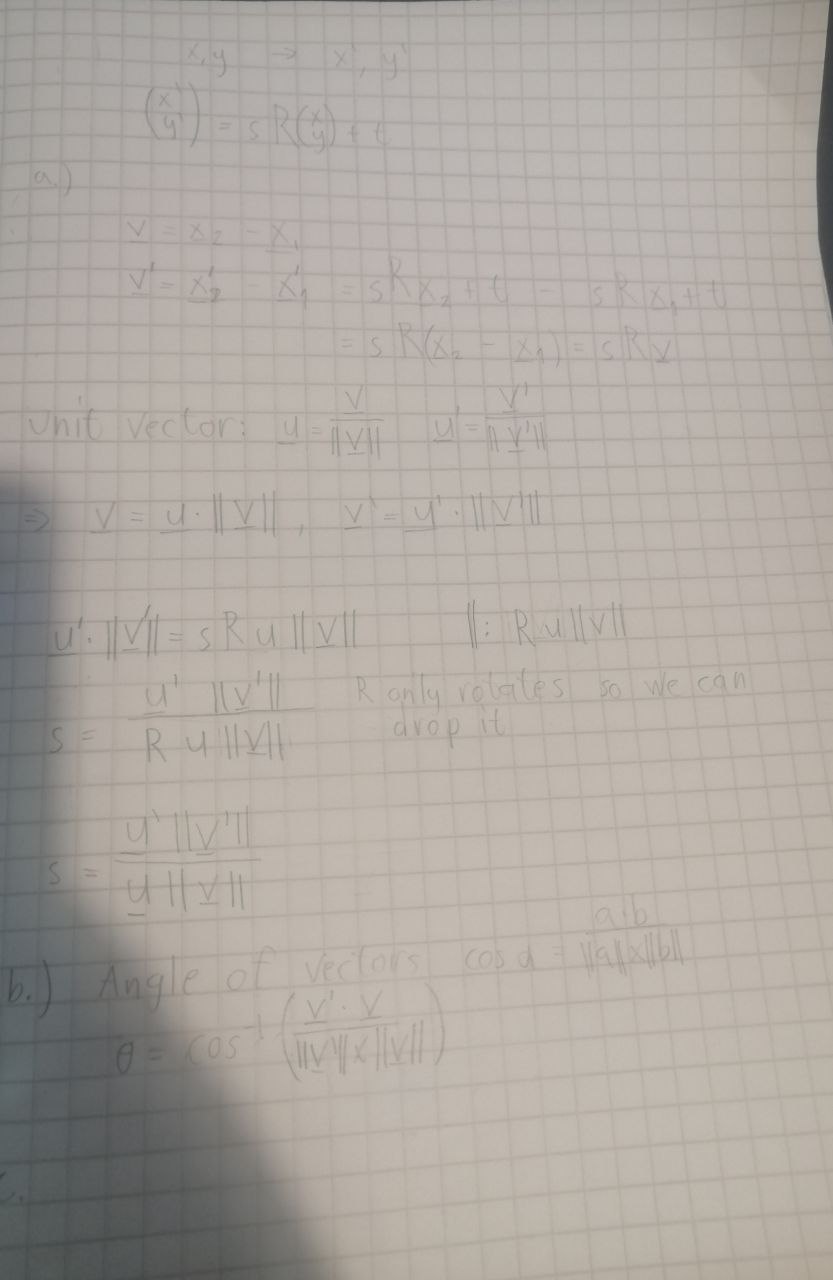 x,y → x', y'
(x' y') = s R(x y) + t
a.)
v = x₂ - x₁
v' = x₂' - x₁' = sRx₂ + t - sRx₁ + t
= sR(x₂ - x₁) = sRv
unit vector: u = v/||v|| u' = v'/||v'||
⇒ v = u · ||v||, v' = u' · ||v'||
u' · ||v'|| = s R u ||v|| ||: R u ||v||
s = u' ||v'|| / R u ||v|| R only rotates so we can
drop it
s = u' ||v'|| / u ||v||
b.) Angle of vectors cos α = a·b / ||a||x||b||
θ = cos⁻¹ (v' · v / ||v'||x||v||)